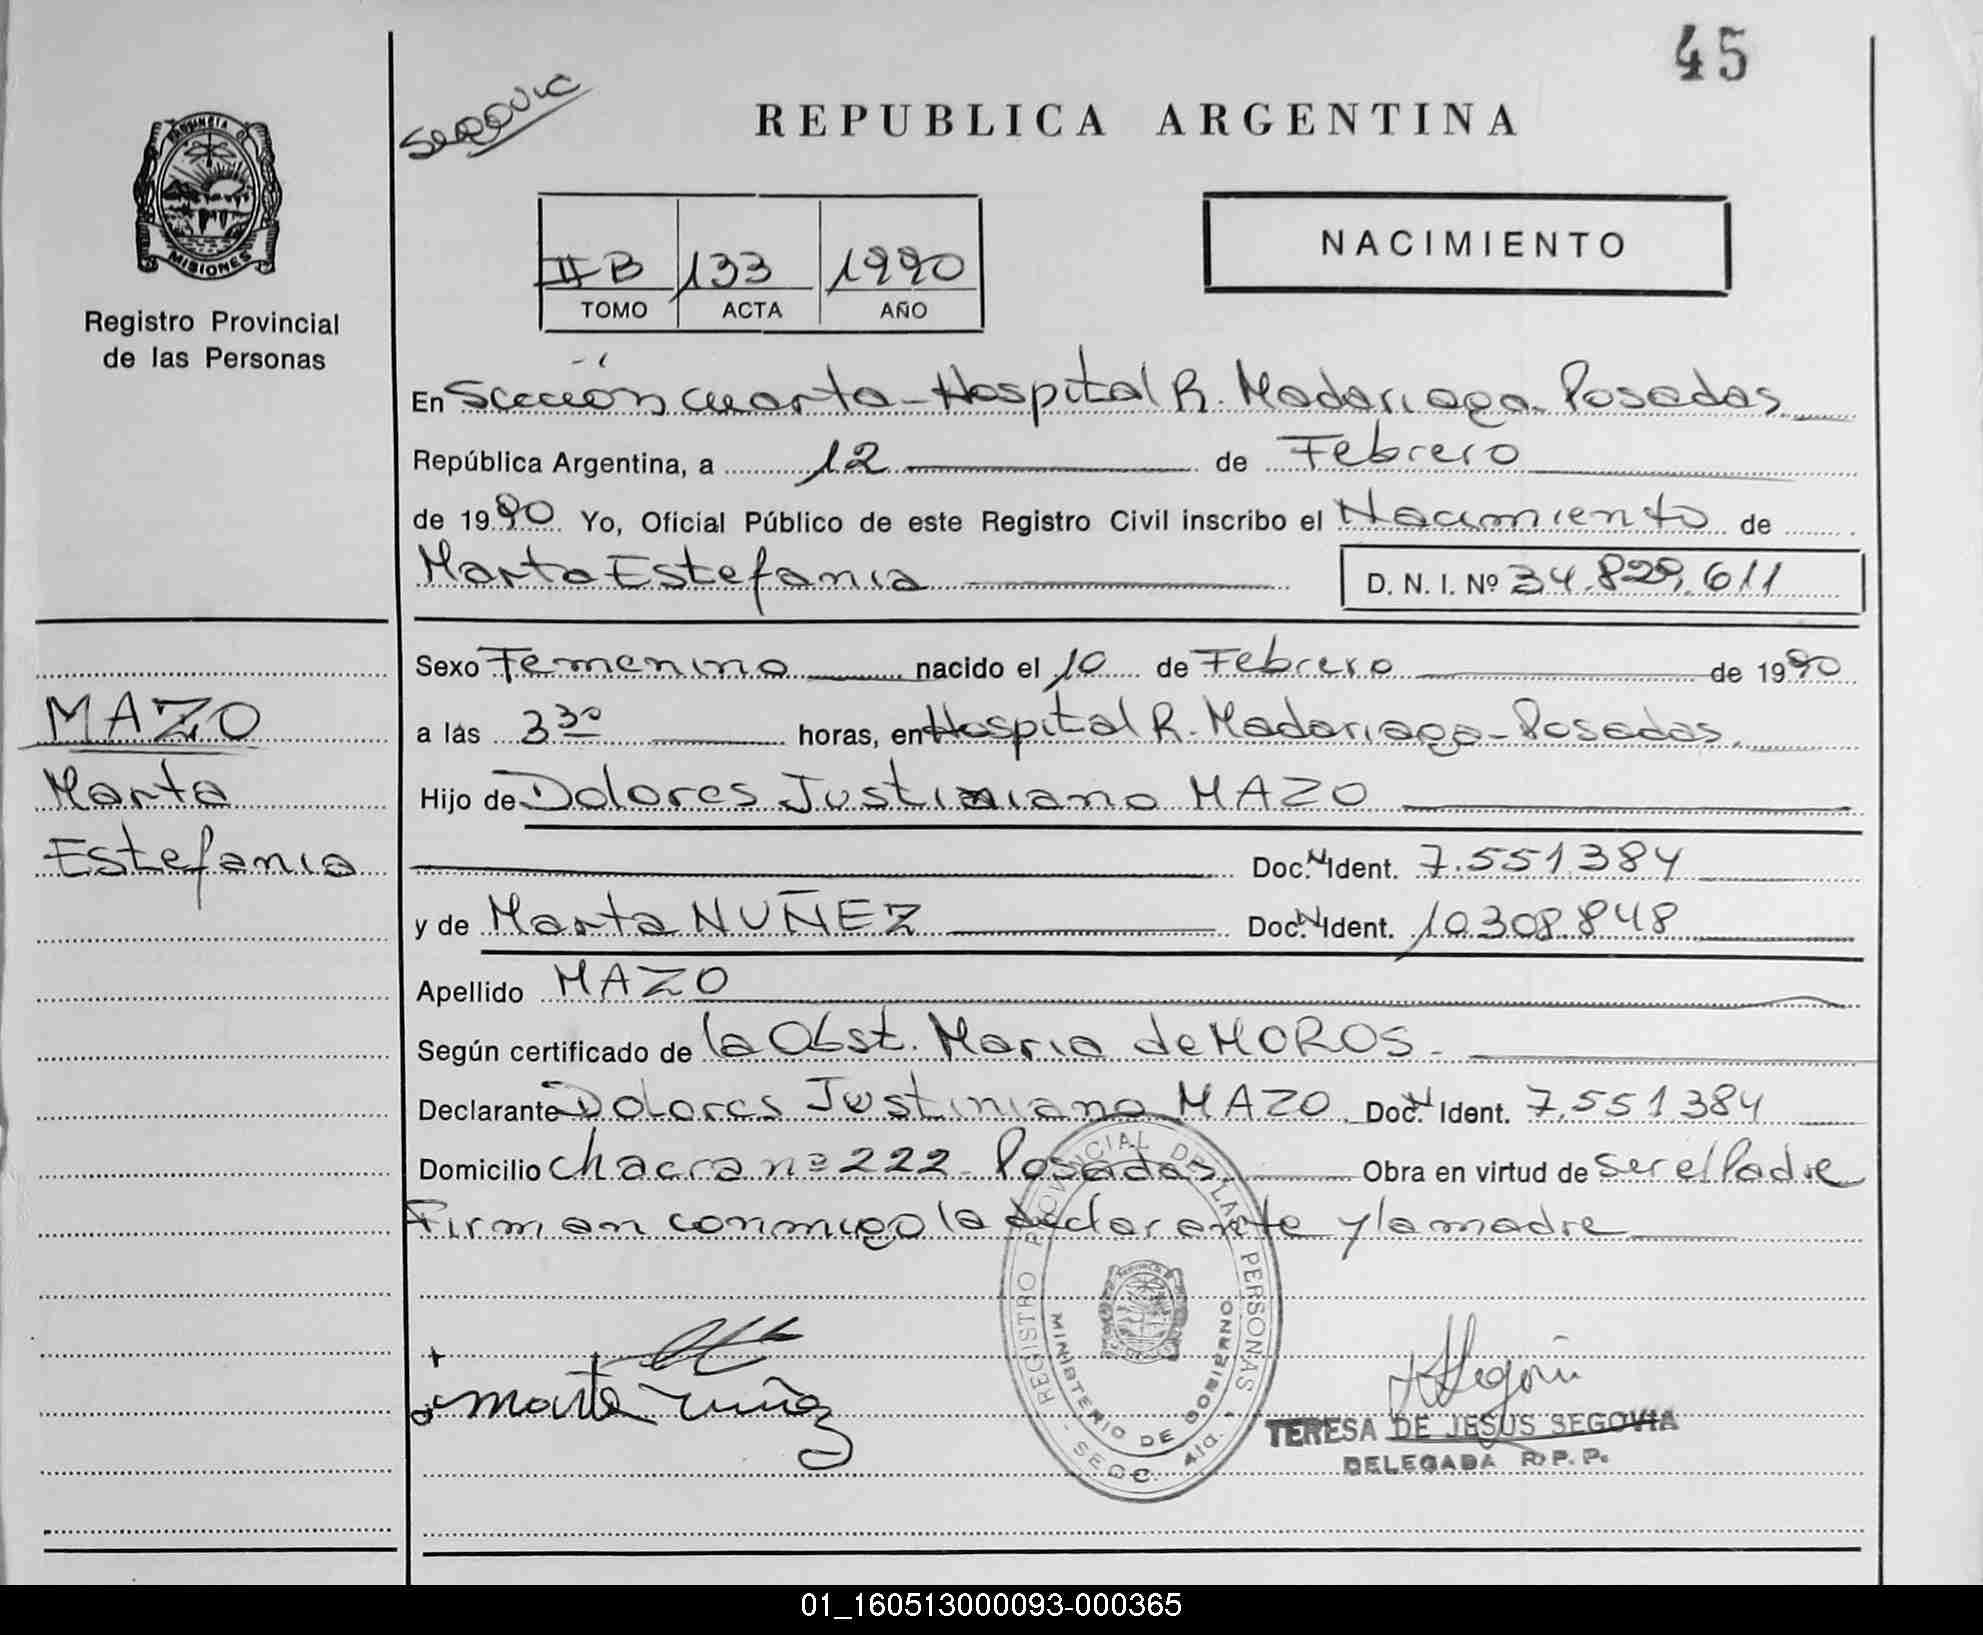 45
Segovia
REPUBLICA ARGENTINA
PROVINCIA D
MISIONES
Registro Provincial
de las Personas
II B 133 1990
TOMO ACTA AÑO
NACIMIENTO
En Sección Cuarta - Hospital R. Madariaga - Posadas
República Argentina, a 12 de Febrero
de 1990 Yo, Oficial Público de este Registro Civil inscribo el Nacimiento de
Marta Estefania D. N. I. Nº 34.829.611
Sexo Femenino nacido el 10 de Febrero de 1990
a las 3 30 horas, en Hospital R. Madariaga - Posadas.
Hijo de Dolores Justiniano MAZO
Doc. N Ident. 7.551.384
y de Marta NUÑEZ Doc. N Ident. 10.308.848
Apellido MAZO
Según certificado de la Obst. Maria de MOROS -
Declarante Dolores Justiniano MAZO. Doc. N Ident. 7.551384
Domicilio chacra nº 222 - Posadas Obra en virtud de ser el Padre
Firman conmigo la declarante y la madre
MAZO
Marta
Estefania
Marta Nuñez
REGISTRO PROVINCIAL DE LAS PERSONAS
MINISTERIO DE GOBIERNO
- SECC. 4ta. -
TSegovia
TERESA DE JESUS SEGOVIA
DELEGADA R. P. P.
01_160513000093-000365